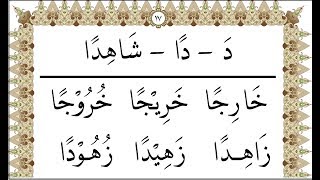 ١٧
دَ - دًا - شَاهِدًا
خَارِجًا خَرِيْجًا خُرُوْجًا
زَاهِدًا زَهِيْدًا زُهُوْدًا